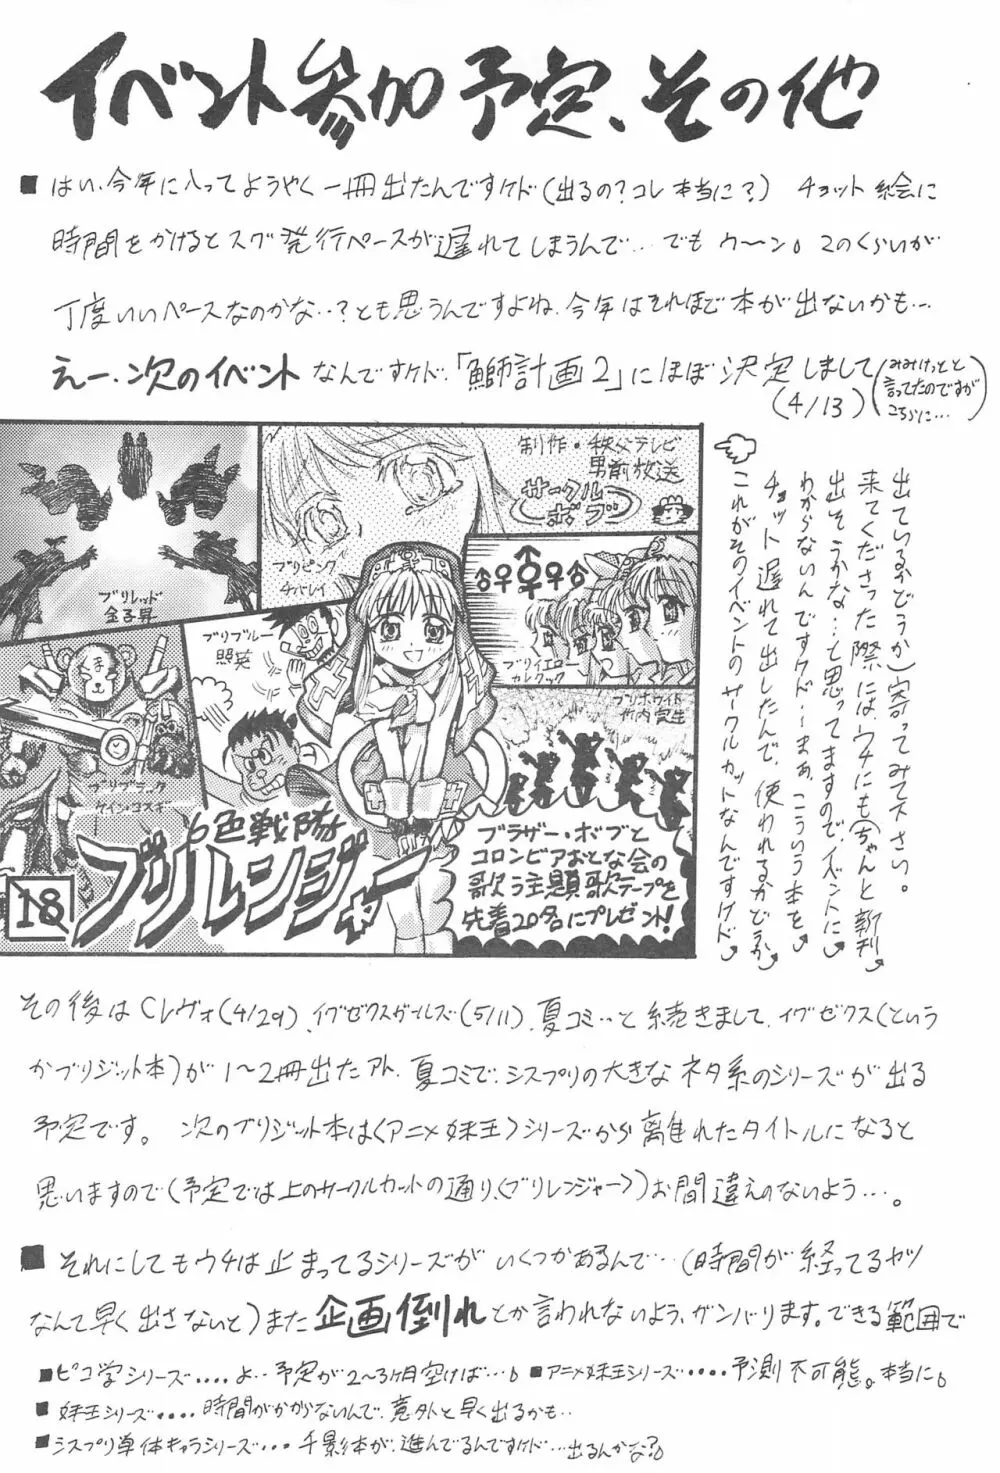 イベント参加予定、その他
■はい、今年に入ってようやく一冊出たんですケド(出るの?コレ本当に?) チョット絵に
時間をかけるとスグ発行ペースが遅れてしまうんで…でもウ〜ン。このくらいが
丁度いいペースなのかな‥?とも思うんですよね、今年はそれほで本が出ないかも…
えー、次のイベントなんですケド、「鰤計画2」にほぼ決定しまして
(4/13)
(みみけっとと
言ってたのですが
こちらに…)
制作・秩父テレビ
男前放送
サークル
ボブ
ブリピンク
チバレイ
ブリレッド
金子昇
ブリブルー
照英
ブリイエロー
カレクック
ブリホワイト
竹内実生
くま
ブリブラック
ケイン・コスギ
6色戦隊
ブリレンジャー
18
ブラザー・ボブと
コロンビアおとな会の
歌う主題歌テープを
先着20名にプレゼント!
これがそのイベントのサークルカットなんですけド
チョット遅れて出したんで、使われるかどうか
わからないんですケド…まぁ、こういう本を
出そうかな…と思ってますので、イベントに
来てくださった際には、ウチにも(ちゃんと新刊
出ているかどうか)寄ってみて下さい。
その後はCレヴォ(4/29)、イグゼクスガールズ(5/11)、夏コミ…と続きまして、イグゼクス(という
かブリジット本)が1〜2冊出たアト、夏コミで、シスプリの大きなネタ系のシリーズが出る
予定です。 次のブリジット本は〈アニメ妹王〉シリーズから離れたタイトルになると
思いますので(予定では上のサークルカットの通り、〈ブリレンジャー〉)お間違えのないよう…。
■それにしてもウチは止まってるシリーズがいくつかあるんで…(時間が経ってるヤツ
なんて早く出さないと)また企画倒れとか言われないよう、ガンバリます。できる範囲で
■ピコ学シリーズ‥‥よ‥予定が2〜3ヶ月空けば…。 ■アニメ妹王シリーズ‥‥予測不可能。本当に。
■妹王シリーズ‥‥時間がかからないんで、意外と早く出るかも‥
■シスプリ単体キャラシリーズ…千影本が、進んでるんですけド…出るんかな?。